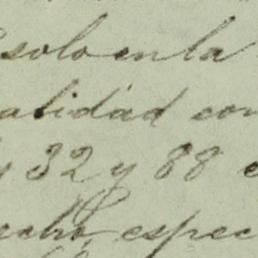 solo en la
alidad con
y 32 y 88 e
echo, espec